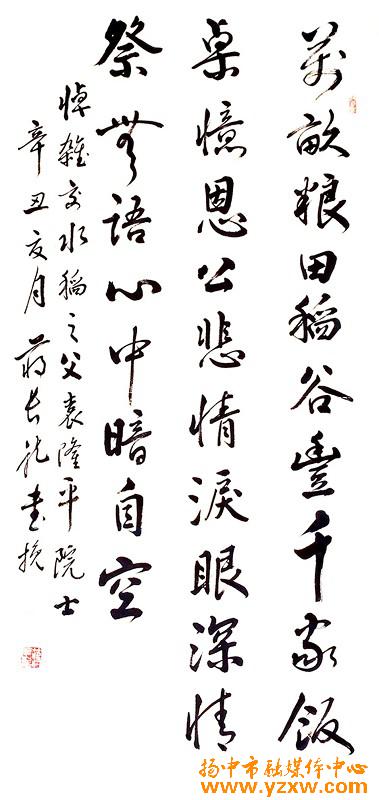 萬畝粮田稻谷豐千家飯
桌憶恩公悲情淚眼深情
祭無語心中暗自空
悼雜交水稻之父袁隆平院士
辛丑夏月蔣長書挽
扬中市融媒体中心
www.yzxw.com